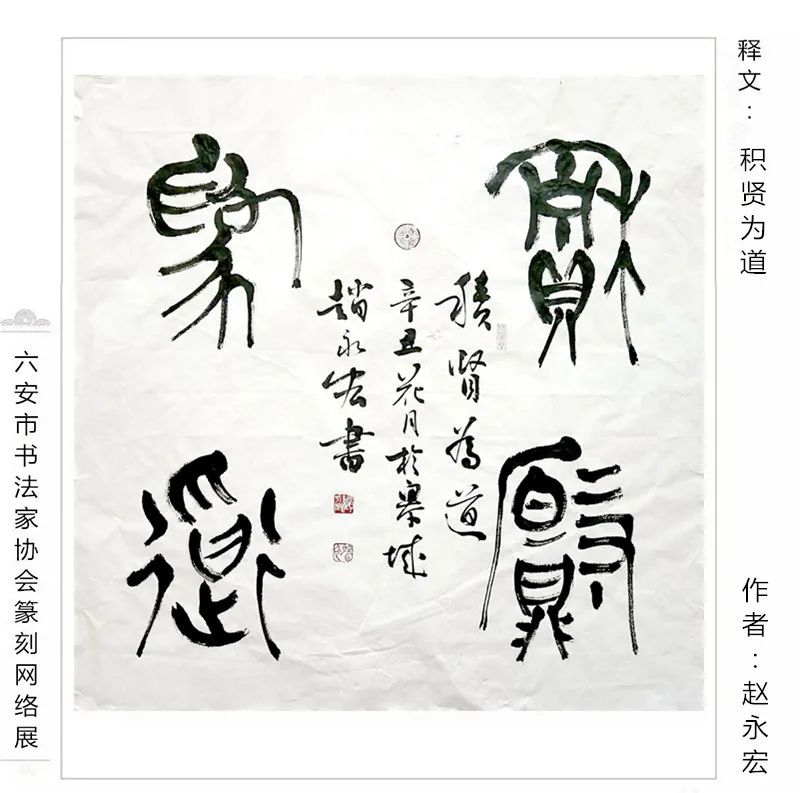 释文：积贤为道
作者：赵永宏
積賢
為道
積賢為道
辛丑花月於皋城
趙永宏書
六安市书法家协会篆刻网络展